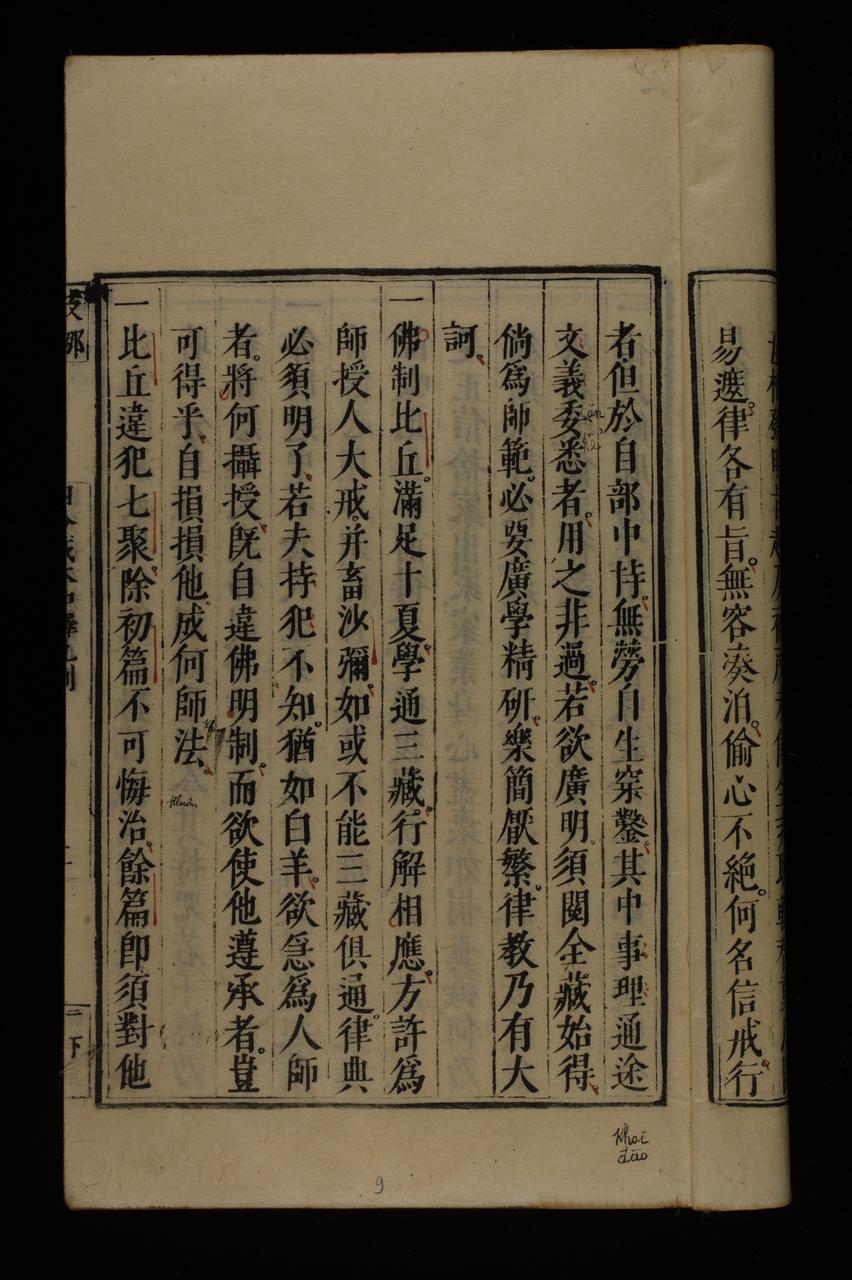 易邊。律各有旨。無容湊泊。偷心不絕。何名信戒。行
者但於自部中持。無勞自生穿鑿。其中事理通途
文義委悉者。用之非過。若欲廣明。須閱全藏。始得。
倘為師範。必要廣學精研。樂簡厭繁。律教乃有大
訶。
一佛制比丘。滿足十夏。學通三藏。行解相應。方許為
師授人大戒。并畜沙彌。如或不能三藏俱通。律典
必須明了。若夫持犯不知。猶如白羊。欲急為人師
者。將何攝授。既自違佛明制。而欲使他遵承者。豈
可得乎。自損損他。成何師法。
一比丘違犯七聚。除初篇不可悔治。餘篇即須對他
khai
đāo
9